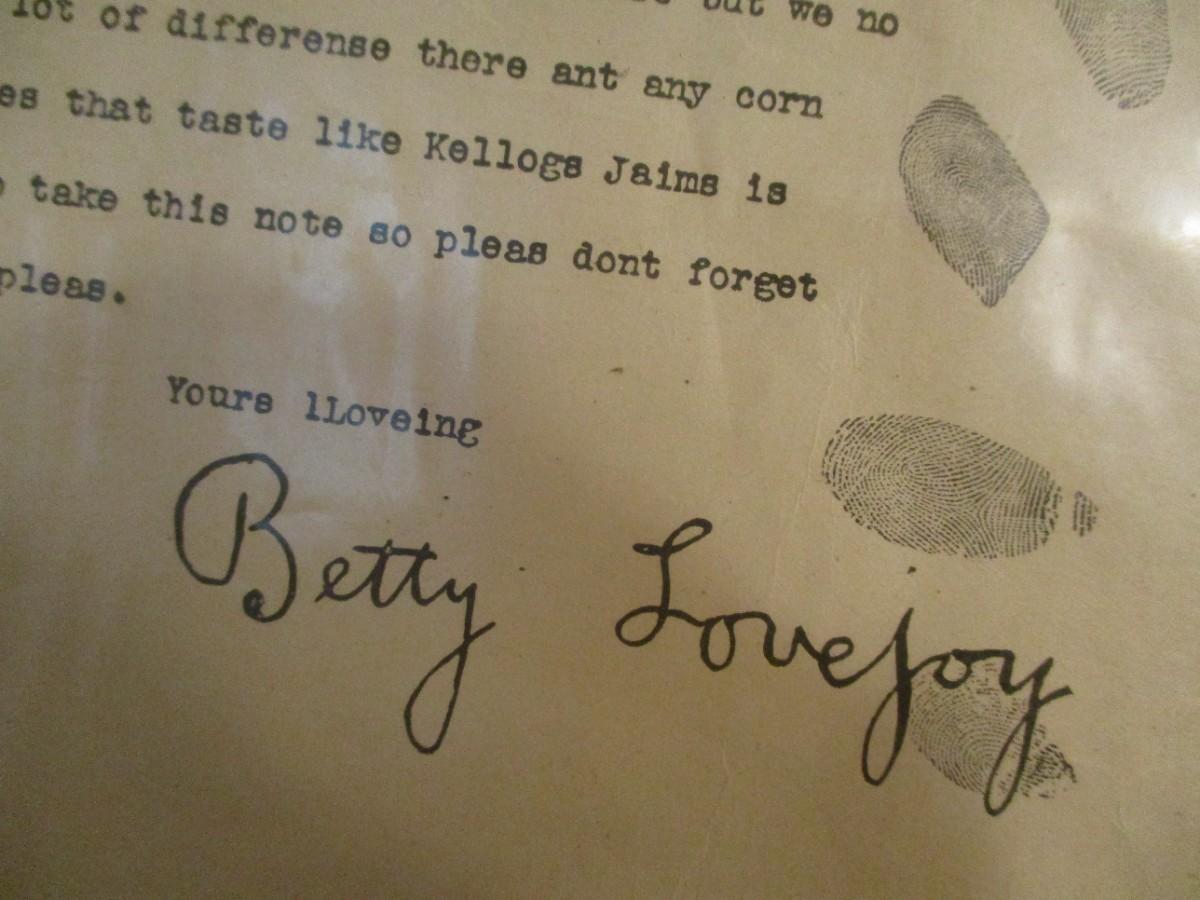 but we no
lot of differense there ant any corn
es that taste like Kellogs Jaims is
take this note so pleas dont forget
pleas.
Yours lLoveing
Betty Lovejoy